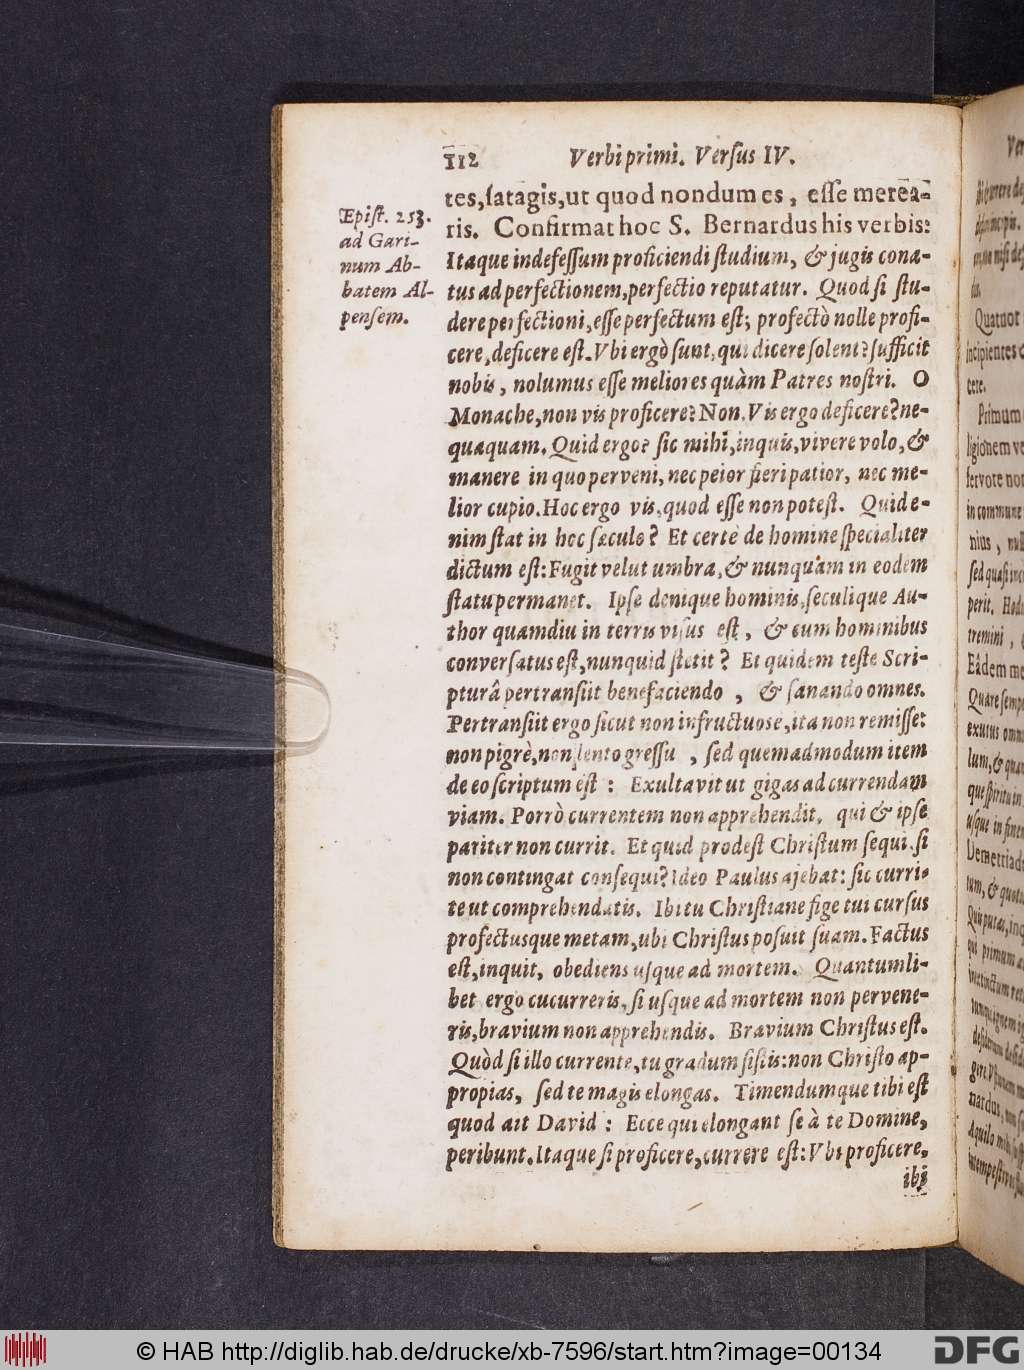 112 Verbi primi. Verſus IV.
tes, ſatagis, ut quod nondum es, eſſe merea-
ris. Confirmat hoc S. Bernardus his verbis:
Itaque indefeſſum proficiendi ſtudium, & jugis cona-
tus ad perfectionem, perfectio reputatur. Quod ſi ſtu-
dere perfectioni, eſſe perfectum eſt; profectò nolle profi-
cere, deficere eſt. Vbi ergò ſunt, qui dicere ſolent? ſufficit
nobis, nolumus eſſe meliores quàm Patres noſtri. O
Monache, non vis proficere? Non. Vis ergo deficere? ne-
quaquam. Quid ergo? ſic mihi, inquis, vivere volo, &
manere in quo perveni, nec peior fieri patior, nec me-
lior cupio. Hoc ergo vis, quod eſſe non poteſt. Quid e-
nim ſtat in hoc ſæculo? Et certè de homine ſpecialiter
dictum eſt: Fugit velut umbra, & nunquàm in eodem
ſtatu permanet. Ipſe denique hominis, ſeculique Au-
thor quamdiu in terris viſus eſt, & cum hominibus
converſatus eſt, nunquid ſtetit? Et quidem teſte Scri-
pturâ pertranſiit benefaciendo, & ſanando omnes.
Pertranſiit ergo ſicut non infructuose, ita non remiſſe:
non pigrè, non lento greſſu, ſed quemadmodum item
de eo ſcriptum eſt: Exultavit ut gigas ad currendam
viam. Porrò currentem non apprehendit, qui & ipſe
pariter non currit. Et quid prodeſt Chriſtum ſequi, ſi
non contingat conſequi? Ideo Paulus ajebat: ſic curri-
te ut comprehendatis. Ibi tu Chriſtiane fige tui curſus
profectusque metam, ubi Chriſtus poſuit ſuam. Factus
eſt, inquit, obediens uſque ad mortem. Quantumli-
bet ergo cucurreris, ſi uſque ad mortem non pervene-
ris, bravium non apprehendis. Bravium Chriſtus eſt.
Quòd ſi illo currente, tu gradum ſiſtis: non Chriſto ap-
propias, ſed te magis elongas. Timendumque tibi eſt
quod ait David: Ecce qui elongant ſe à te Domine,
peribunt. Itaque ſi proficere, currere eſt: Vbi proficere,
ibi
Epiſt. 253.
ad Gari-
num Ab-
batem Al-
penſem.
© HAB http://diglib.hab.de/drucke/xb-7596/start.htm?image=00134
DFG